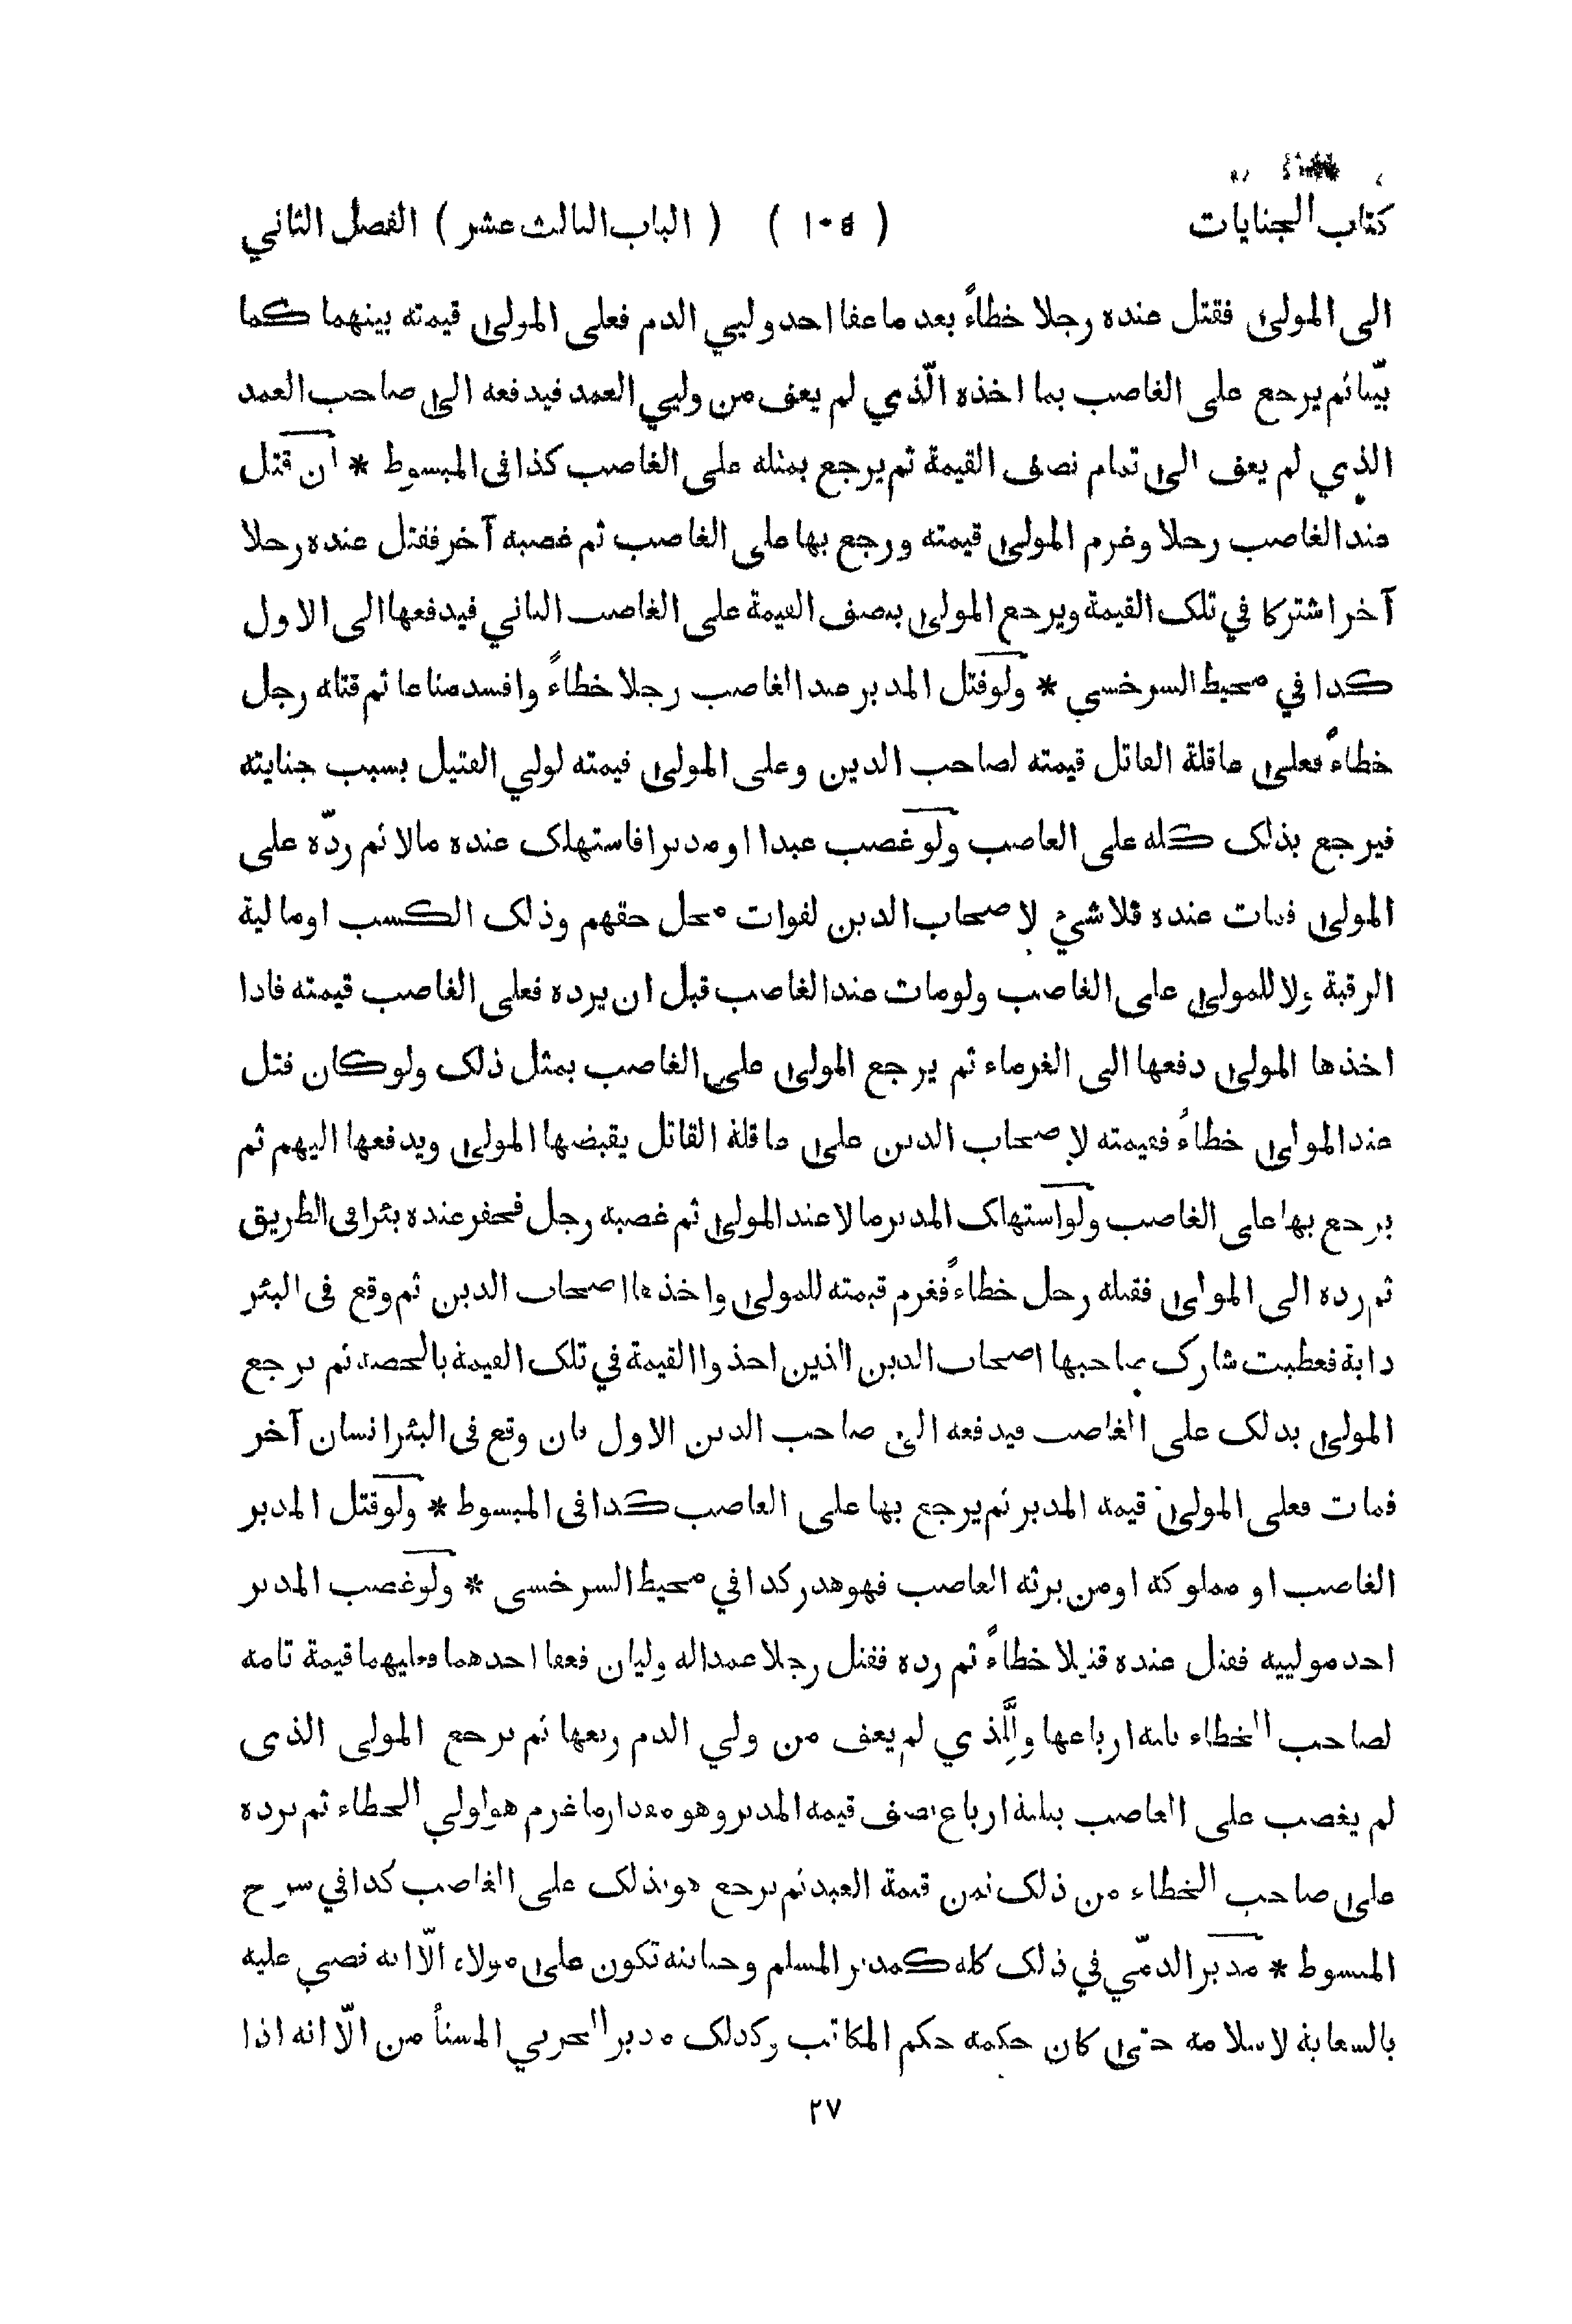 كتاب الجنايات ( ١٠٥ ) ( الباب الثالث عشر ) الفصل الثاني
الى المولى فقتل عنده رجلا خطاءً بعد ما عفا احد وليي الدم فعلى المولى قيمته بينهما كما
بيّنا ثم يرجع على الغاصب بما اخذه الّذي لم يعف من وليي العمد فيدفعه الى صاحب العمد
الذي لم يعف الى تمام نصف القيمة ثم يرجع بمثله على الغاصب كذا فى المبسوط * ان قتل
عند الغاصب رجلا وغرم المولى قيمته ورجع بها على الغاصب ثم غصبه آخر فقتل عنده رجلا
آخر اشتركا في تلك القيمة ويرجع المولى بنصف القيمة على الغاصب الثاني فيدفعها الى الاول
كذا في محيط السرخسي * ولو قتل المدبر عند الغاصب رجلا خطاءً وافسد متاعا ثم قتله رجل
خطاءً فعلى عاقلة القاتل قيمته لصاحب الدين وعلى المولى قيمته لولي القتيل بسبب جنايته
فيرجع بذلك كله على الغاصب ولو غصب عبدا او مدبرا فاستهلك عنده مالا ثم ردّه على
المولى فمات عنده فلا شيء لاصحاب الدين لفوات محل حقهم وذلك الكسب او مالية
الرقبة ولا للمولى على الغاصب ولو مات عند الغاصب قبل ان يرده فعلى الغاصب قيمته فاذا
اخذها المولى دفعها الى الغرماء ثم يرجع المولى على الغاصب بمثل ذلك ولو كان قتل
عند المولى خطاءً فقيمته لاصحاب الدين على عاقلة القاتل يقبضها المولى ويدفعها اليهم ثم
يرجع بها على الغاصب ولو استهلك المدبر مالا عند المولى ثم غصبه رجل فحفر عنده بئرا فى الطريق
ثم رده الى المولى فقتله رجل خطاءً فغرم قيمته للمولى واخذها اصحاب الدين ثم وقع فى البئر
دابة فعطبت شارك صاحبها اصحاب الدين الذين اخذوا القيمة في تلك القيمة بالحصة ثم يرجع
المولى بذلك على الغاصب فيدفعه الى صاحب الدين الاول فان وقع فى البئر انسان آخر
فمات فعلى المولى قيمة المدبر ثم يرجع بها على الغاصب كذا فى المبسوط * ولو قتل المدبر
الغاصب او مملوكه او من يرثه الغاصب فهو هدر كذا في محيط السرخسى * ولو غصب المدبر
احد مولييه فقتل عنده قتيلا خطاءً ثم رده فقتل رجلا عمدا له وليان فعفا احدهما فعليهما قيمة تامة
لصاحب الخطاء ثلثة ارباعها والّذي لم يعف من ولي الدم ربعها ثم يرجع المولى الذى
لم يغصب على الغاصب بثلثة ارباع نصف قيمة المدبر وهو مقدار ما غرم هو لولي الخطاء ثم يرده
على صاحب الخطاء من ذلك ثمن قيمة العبد ثم يرجع هو بذلك على الغاصب كذا في شرح
المبسوط * مدبر الذمّي في ذلك كله كمدبر المسلم وجنايته تكون على مولاه الّا انه قضي عليه
بالسعاية لاسلامه حتى كان حكمه حكم المكاتب وكذلك مدبر الحربي المستأمن الّا انه اذا
٢٧